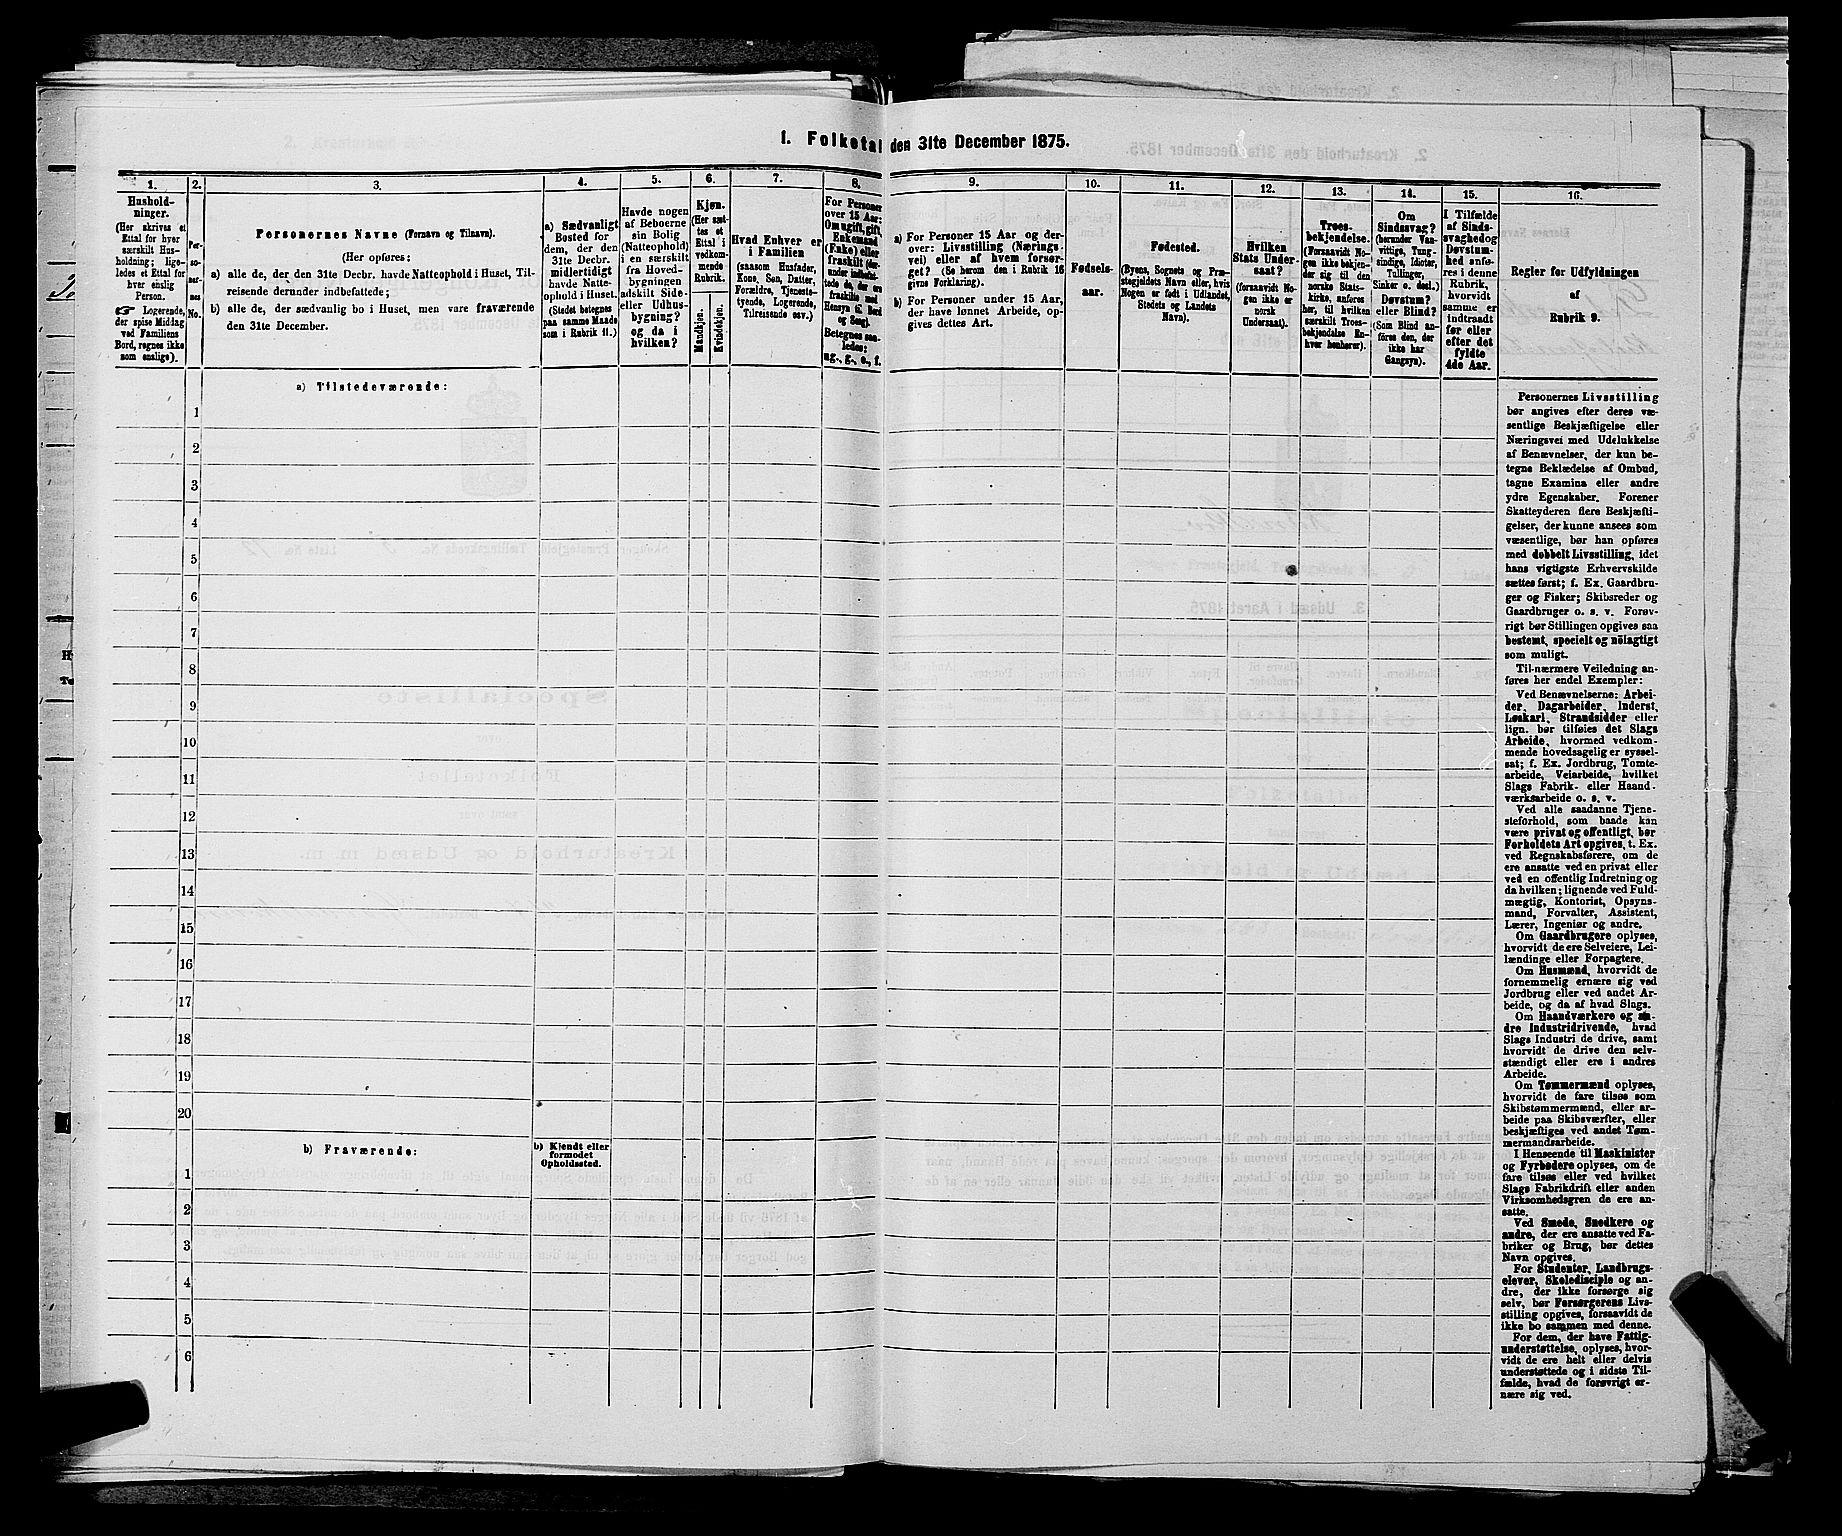 1. Folketal den 31te December 1875.
1.
Hushold-
ninger.
(Her skrives et
Ettal for hver
særskilt Hus-
holdning; lige-
ledes et Ettal for
hver enslig
Person.
☞ Logerende,
der spise Middag
ved Familiens
Bord, regnes ikke
som enslige).
2.
Per-
so-
ner-
nes
No.
3.
Personernes Navne (Fornavn og Tilnavn).
(Her opføres:
a) alle de, der den 31te Decbr. havde Natteophold i Huset, Til-
reisende derunder indbefattede;
b) alle de, der sædvanlig bo i Huset, men vare fraværende
den 31te December.
4.
a) Sædvanligt
Bosted for
dem, der den
31te Decbr.
midlertidigt
havde Natte-
ophold i Huset.
(Stedet betegnes
paa samme Maade
som i Rubrik 11.)
5.
Havde nogen
af Beboerne
sin Bolig
(Natteophold)
i en særskilt
fra Hoved-
bygningen
adskilt Side-
eller Udhus-
bygning?
og da i
hvilken?
6.
Kjøn.
(Her sæt-
tes et
Ettal i
vedkom-
mende
Rubrik.
Mandkjøn.
Kvindekjøn.
7.
Hvad Enhver er
i Familien
(saasom Husfader,
Kone, Søn, Datter,
Forældre, Tjeneste-
tyende, Logerende,
Tilreisende osv.)
8.
For Personer
over 15 Aar:
Om ugift, gift,
Enkemand
(Enke) eller
fraskilt (der-
under indbefat-
tede de, der ere
fraskilte med
Hensyn til Bord
og Seng).
Betegnes saa-
ledes:
ug., g., e., f.
9.
a) For Personer 15 Aar og der-
over: Livsstilling (Nærings-
vei) eller af hvem forsør-
get? (Se herom den i Rubrik 16
givne Forklaring).
b) For Personer under 15 Aar,
der have lønnet Arbeide, op-
gives dettes Art.
10.
Fødsels-
aar.
11.
Fødested.
(Byens, Sognets og Præ-
stegjeldets Navn eller, hvis
Nogen er født i Udlandet,
Stedets og Landets
Navn).
12.
Hvilken
Stats Under-
saat?
(forsaavidt No-
gen ikke er
norsk
Undersaat).
13.
Troes-
bekjendelse.
(Forsaavidt No-
gen ikke bekjen-
der sig til den
norske Stats-
kirke, anføres
her, til hvilken
særskilt Troes-
bekjendelse En-
hver henhører).
14.
Om
Sindssvag?
(herunder Van-
vittige, Tung-
sindige, Idioter,
Tullinger,
Sinker o. desl.)
Døvstum?
eller Blind?
(Som Blind an-
føres den, der
ikke har
Gangsyn).
15.
I Tilfælde
af Sinds-
svaghed og
Døvstum-
hed anfø-
res i denne
Rubrik,
hvorvidt
samme er
indtraadt
før eller
efter det
fyldte
4de Aar.
16.
Regler for Udfyldningen
af
Rubrik 9.
a) Tilstedeværende:
1
2
3
4
5
6
7
8
9
10
11
12
13
14
15
16
17
18
19
20
b) Fraværende:
b) Kjendt eller
formodet
Opholdssted.
1
2
3
4
5
6
Personernes Livsstilling
bør angives efter deres væ-
sentlige Beskjæftigelse eller
Næringsvei med Udelukkelse
af Benævnelser, der kun be-
tegne Beklædelse af Ombud,
tagne Examina eller andre
ydre Egenskaber. Forener
Skatteyderen flere Beskjæfti-
gelser, der kunne ansees som
væsentlige, bør han opføres
med dobbelt Livsstilling, idet
hans vigtigste Erhvervskilde
sættes først; f. Ex. Gaardbru-
ger og Fisker; Skibsreder og
Gaardbruger o. s. v. Forøv-
rigt bør Stillingen opgives saa
bestemt, specielt og nölagtigt
som muligt.
Til nærmere Veiledning an-
føres her endel Exempler:
Ved Benævnelserne: Arbei-
der, Dagarbeider, Inderst,
Løskarl, Strandsidder eller
lign. bør tilføies det Slags
Arbeide, hvormed vedkom-
mende hovedsagelig er syssel-
sat; f. Ex. Jordbrug, Tomte-
arbeide, Veiarbeide, hvilket
Slags Fabrik- eller Haand-
værksarbeide o. s. v.
Ved alle saadanne Tjene-
steforhold, som baade kan
være privat og offentligt, bør
Forholdets Art opgives, t. Ex.
ved Regnskabsførere, om de
ere ansatte ved en privat eller
ved en offentlig Indretning og
da hvilken; lignende ved Fuld-
mægtig, Kontorist, Opsyns-
mand, Forvalter, Assistent,
Lærer, Ingeniør og andre.
Om Gaardbrugere oplyses,
hvorvidt de ere Selveiere, Lei-
lændinge eller Forpagtere.
Om Husmænd, hvorvidt de
fornemmelig ernære sig ved
Jordbrug eller ved andet Ar-
beide, og da af hvad Slags.
Om Haandværkere og an-
dre Industridrivende, hvad
Slags Industri de drive, samt
hvorvidt de drive den selv-
stændigt eller ere i andres
Arbeide.
Om Tømmermænd oplyses,
hvorvidt de fare tilsøs som
Skibstømmermænd, eller ar-
beide paa Skibsværfter, eller
beskjæftiges ved andet Tøm-
mermandsarbeide.
I Henseende til Maskinister
og Fyrbødere oplyses, om de
fare tilsøs eller ved hvilket
Slags Fabrikdrift eller anden
Virksomhedsgren de ere an-
satte.
Ved Smede, Snedkere og
andre, der ere ansatte ved Fa-
briker og Brug, bør dettes
Navn opgives.
For Studenter, Landbrugs-
elever, Skoledisciple og an-
dre, der ikke forsørge sig
selv, bør Forsørgerens Livs-
stilling opgives, forsaavidt de
ikke bo sammen med denne.
For dem, der have Fattig-
understøttelse, oplyses, hvor-
vidt de ere helt eller delvis
understøttede og i sidste Til-
fælde, hvad de forøvrigt er-
nære sig ved.